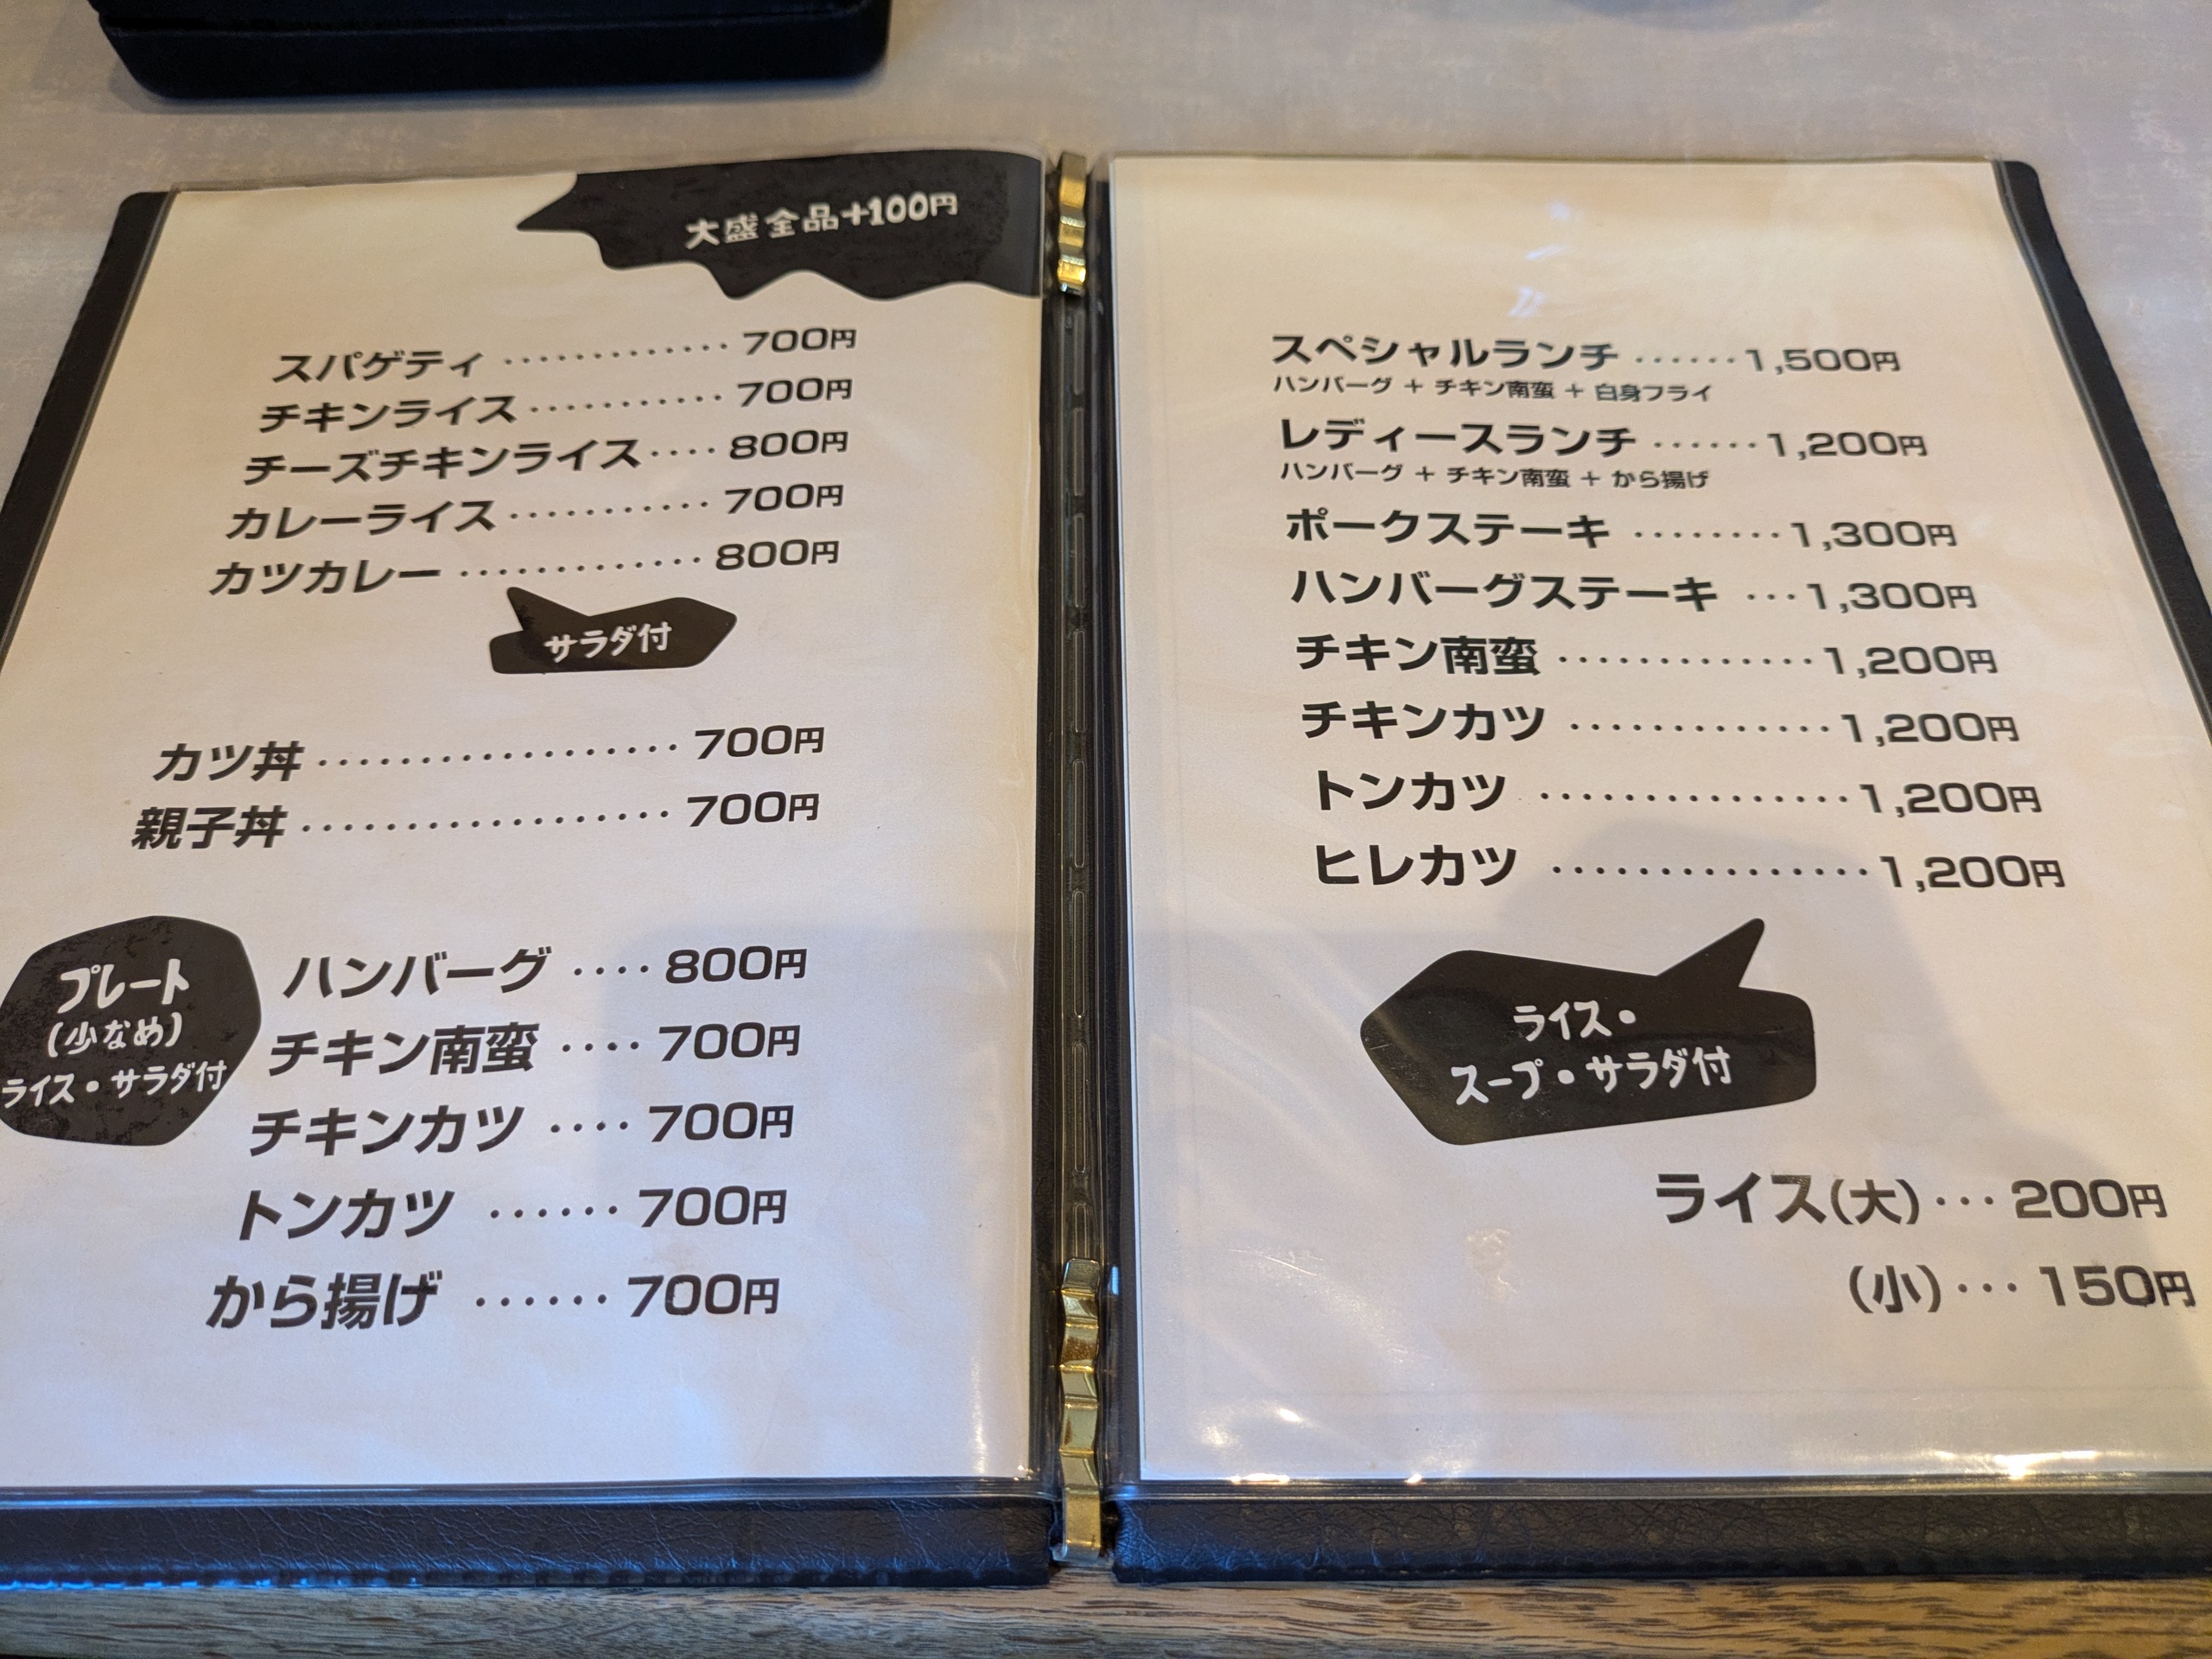 大盛全品+100円
スパゲティ ············· 700円
チキンライス ··········· 700円
チーズチキンライス ···· 800円
カレーライス ··········· 700円
カツカレー ············· 800円
サラダ付
カツ丼 ··················· 700円
親子丼 ··················· 700円
プレート
(少なめ)
ライス・サラダ付
ハンバーグ ···· 800円
チキン南蛮 ···· 700円
チキンカツ ···· 700円
トンカツ ······ 700円
から揚げ ······ 700円
スペシャルランチ ······ 1,500円
ハンバーグ + チキン南蛮 + 白身フライ
レディースランチ ······ 1,200円
ハンバーグ + チキン南蛮 + から揚げ
ポークステーキ ········ 1,300円
ハンバーグステーキ ··· 1,300円
チキン南蛮 ············· 1,200円
チキンカツ ············· 1,200円
トンカツ ················ 1,200円
ヒレカツ ················ 1,200円
ライス・
スープ・サラダ付
ライス(大) ··· 200円
(小) ··· 150円